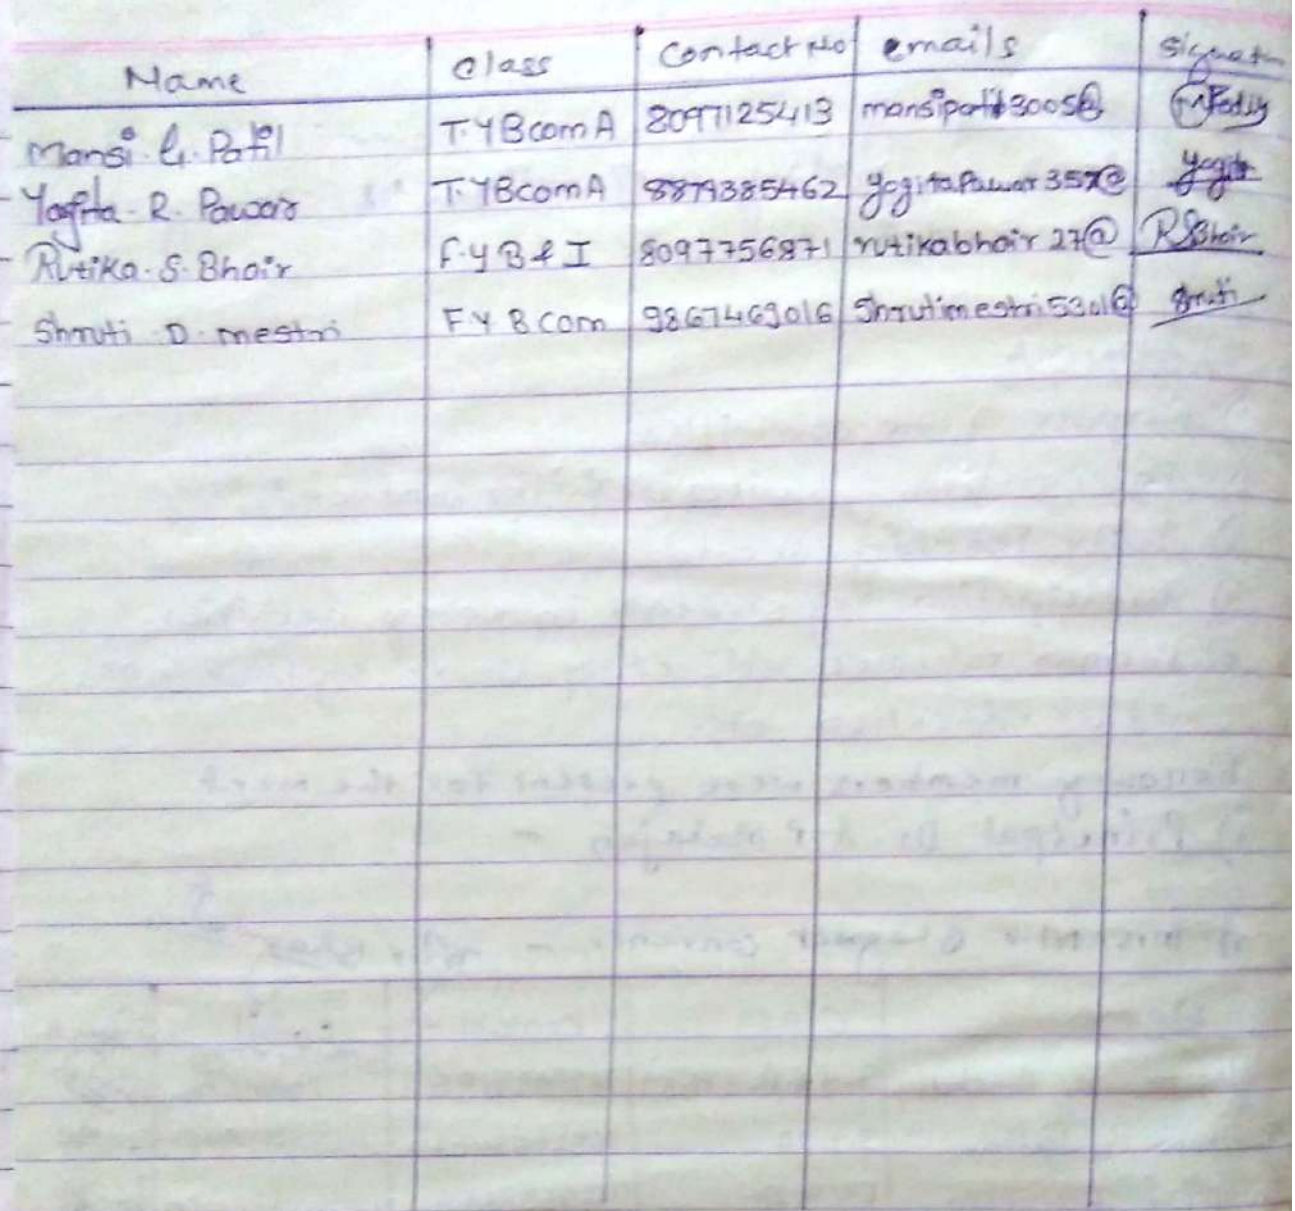 Name Class Contact No emails
Mansi G. Patil T.Y Bcom A 8097125413 mansipatil3005@
Yogita R. Pawar T.Y Bcom A 8879385462 yogitaPawar357@
Rutika. S. Bhoir F.Y B & I 8097756871 rutikabhoir27@ RSBhoir
Shruti D. mestri F.Y B com 9867469016 Shrutimestri5301@ Sruti